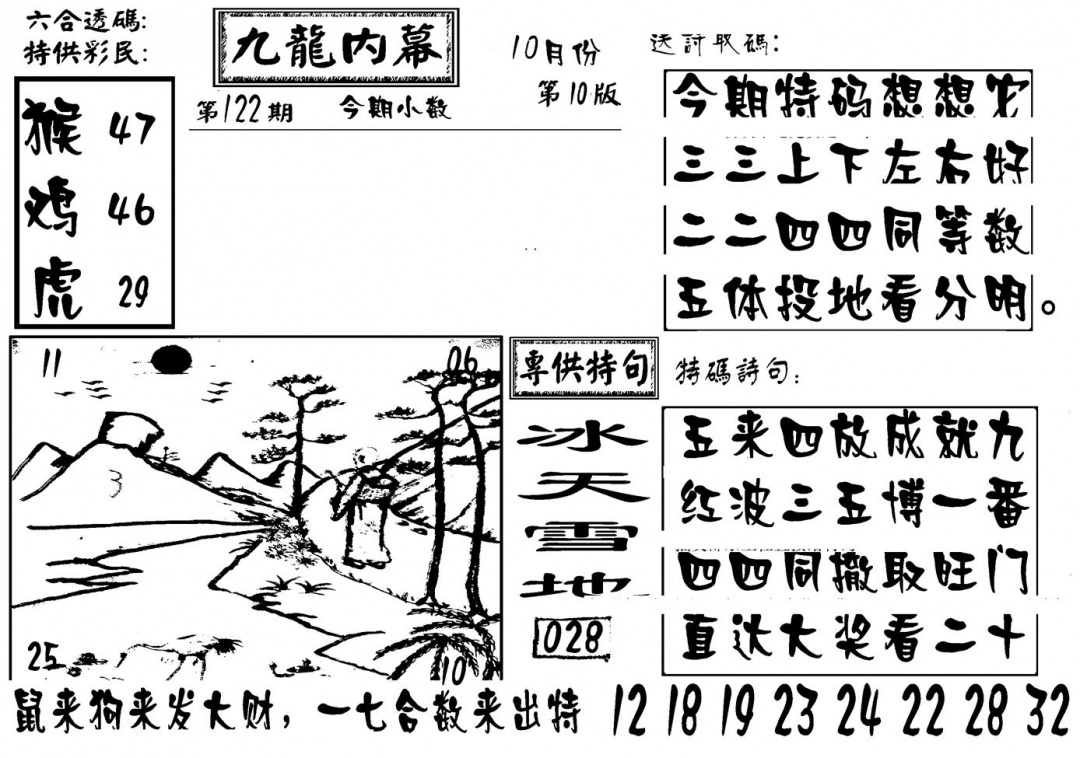 六合透碼:
特供彩民:
猴 47
鸡 46
虎 29
九龍内幕
第122期 今期小数
10月份
第10版
送討取碼:
今期特码想想它
三三上下左右好
二二四四同等数
五体投地看分明。
11 06
3
25 10
專供特句
冰天雪地
028
特碼詩句:
五来四放成就九
红波三五博一番
四四同撤取旺门
直达大奖看二十
鼠来狗来发大财,一七合数来出特 12 18 19 23 24 22 28 32